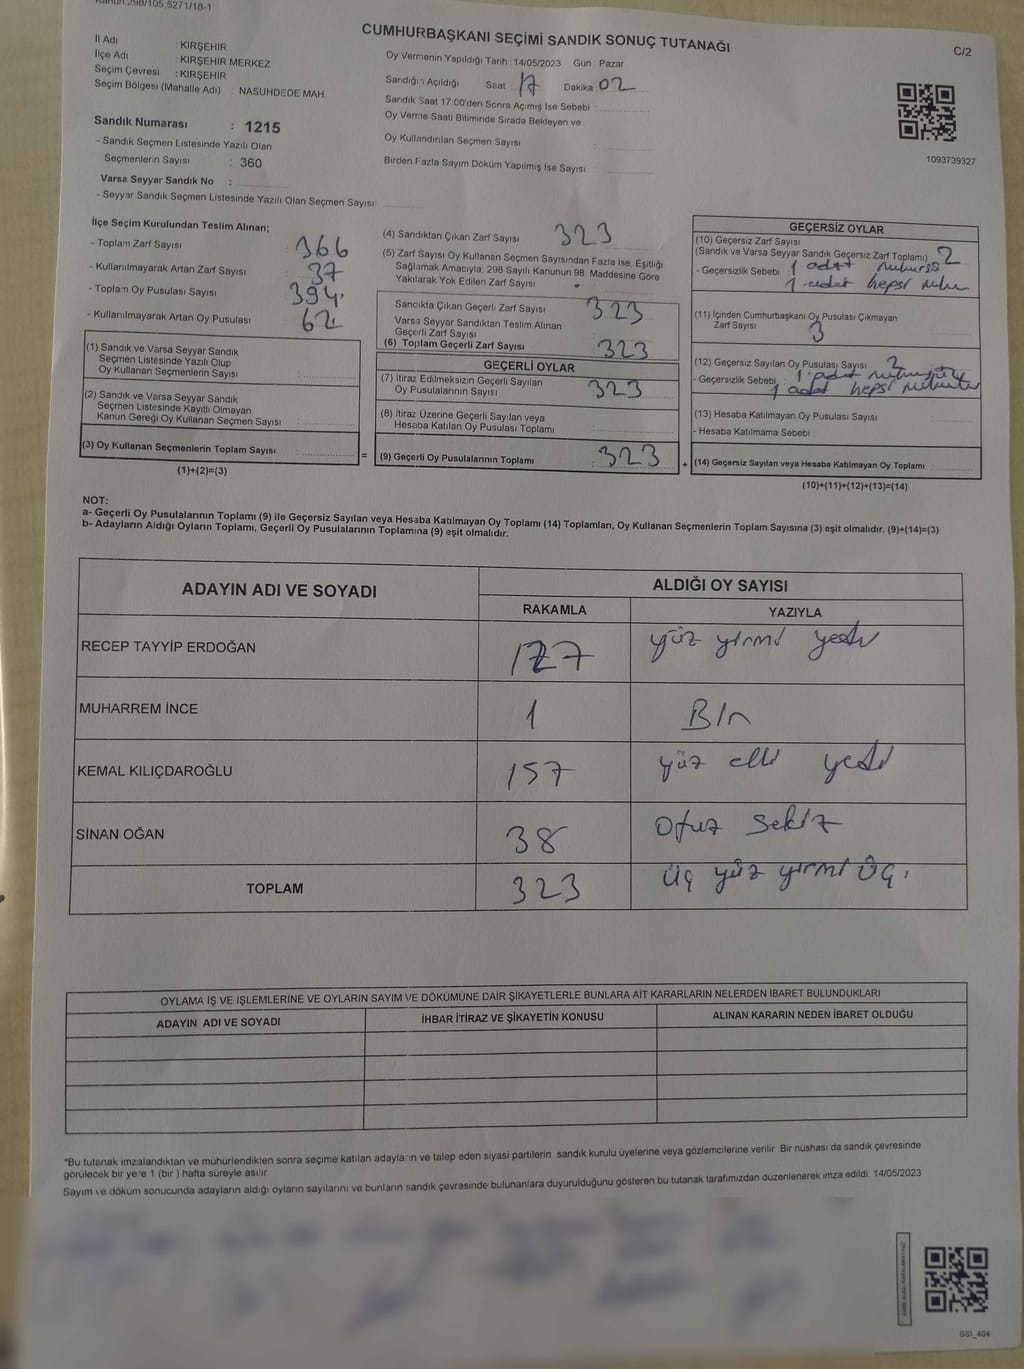 Kanun,298/105,5271/18-1
CUMHURBAŞKANI SEÇİMİ SANDIK SONUÇ TUTANAĞI
C/2
İl Adı : KIRŞEHİR
İlçe Adı : KIRŞEHİR MERKEZ
Seçim Çevresi : KIRŞEHİR
Seçim Bölgesi (Mahalle Adı) : NASUHDEDE MAH.
Sandık Numarası : 1215
- Sandık Seçmen Listesinde Yazılı Olan
Seçmenlerin Sayısı : 360
Varsa Seyyar Sandık No :
- Seyyar Sandık Seçmen Listesinde Yazılı Olan Seçmen Sayısı:
Oy Vermenin Yapıldığı Tarih : 14/05/2023 Gün : Pazar
Sandığın Açıldığı Saat : 17 Dakika 02
Sandık Saat 17:00'den Sonra Açımış İse Sebebi :
Oy Verme Saati Bitiminde Sırada Bekleyen ve
Oy Kullandırılan Seçmen Sayısı :
Birden Fazla Sayım Döküm Yapılmış İse Sayısı :
1093739327
İlçe Seçim Kurulundan Teslim Alınan;
- Toplam Zarf Sayısı 366
- Kullanılmayarak Artan Zarf Sayısı 37
- Toplam Oy Pusulası Sayısı 394
- Kullanılmayarak Artan Oy Pusulası 62
(1) Sandık ve Varsa Seyyar Sandık
Seçmen Listesinde Yazılı Olup
Oy Kullanan Seçmenlerin Sayısı :
(2) Sandık ve Varsa Seyyar Sandık
Seçmen Listesinde Kayıtlı Olmayan
Kanun Gereği Oy Kullanan Seçmen Sayısı :
(3) Oy Kullanan Seçmenlerin Toplam Sayısı :
(1)+(2)=(3)
(4) Sandıktan Çıkan Zarf Sayısı 323
(5) Zarf Sayısı Oy Kullanan Seçmen Sayısından Fazla İse, Eşitliği
Sağlamak Amacıyla; 298 Sayılı Kanunun 98. Maddesine Göre
Yakılarak Yok Edilen Zarf Sayısı :
Sandıkta Çıkan Geçerli Zarf Sayısı 323
Varsa Seyyar Sandıktan Teslim Alınan
Geçerli Zarf Sayısı
(6) Toplam Geçerli Zarf Sayısı 323
=
GEÇERLİ OYLAR
(7) İtiraz Edilmeksizin Geçerli Sayılan
Oy Pusulalarının Sayısı 323
(8) İtiraz Üzerine Geçerli Sayılan veya
Hesaba Katılan Oy Pusulası Toplamı :
(9) Geçerli Oy Pusulalarının Toplamı 323
+
GEÇERSİZ OYLAR
(10) Geçersiz Zarf Sayısı
(Sandık ve Varsa Seyyar Sandık Geçersiz Zarf Toplamı) 2
- Geçersizlik Sebebi 1 adet
1 adet hepsi
(11) İçinden Cumhurbaşkanı Oy Pusulası Çıkmayan
Zarf Sayısı 3
(12) Geçersiz Sayılan Oy Pusulası Sayısı 2
- Geçersizlik Sebebi 1 adet
1 adet hepsi
(13) Hesaba Katılmayan Oy Pusulası Sayısı
- Hesaba Katılmama Sebebi
(14) Geçersiz Sayılan veya Hesaba Katılmayan Oy Toplamı :
(10)+(11)+(12)+(13)=(14)
NOT:
a- Geçerli Oy Pusulalarının Toplamı (9) ile Geçersiz Sayılan veya Hesaba Katılmayan Oy Toplamı (14) Toplamları, Oy Kullanan Seçmenlerin Toplam Sayısına (3) eşit olmalıdır. (9)+(14)=(3)
b- Adayların Aldığı Oyların Toplamı, Geçerli Oy Pusulalarının Toplamına (9) eşit olmalıdır.
ADAYIN ADI VE SOYADI ALDIĞI OY SAYISI
RAKAMLA YAZIYLA
RECEP TAYYİP ERDOĞAN 127 yüz yirmi yedi
MUHARREM İNCE 1 Bir
KEMAL KILIÇDAROĞLU 157 yüz elli yedi
SİNAN OĞAN 38 Otuz Sekiz
TOPLAM 323 Üç yüz yirmi üç
OYLAMA İŞ VE İŞLEMLERİNE VE OYLARIN SAYIM VE DÖKÜMÜNE DAİR ŞİKAYETLERLE BUNLARA AİT KARARLARIN NELERDEN İBARET BULUNDUKLARI
ADAYIN ADI VE SOYADI İHBAR İTİRAZ VE ŞİKAYETİN KONUSU ALINAN KARARIN NEDEN İBARET OLDUĞU
*Bu tutanak imzalandıktan ve mühürlendikten sonra seçime katılan adayların ve talep eden siyasi partilerin sandık kurulu üyelerine veya gözlemcilerine verilir. Bir nüshası da sandık çevresinde
görülecek bir yere 1 (bir ) hafta süreyle asılır.
Sayım ve döküm sonucunda adayların aldığı oyların sayılarını ve bunların sandık çevresinde bulunanlara duyurulduğunu gösteren bu tutanak tarafımızdan düzenlenerek imza edildi. 14/05/2023
SSI_404